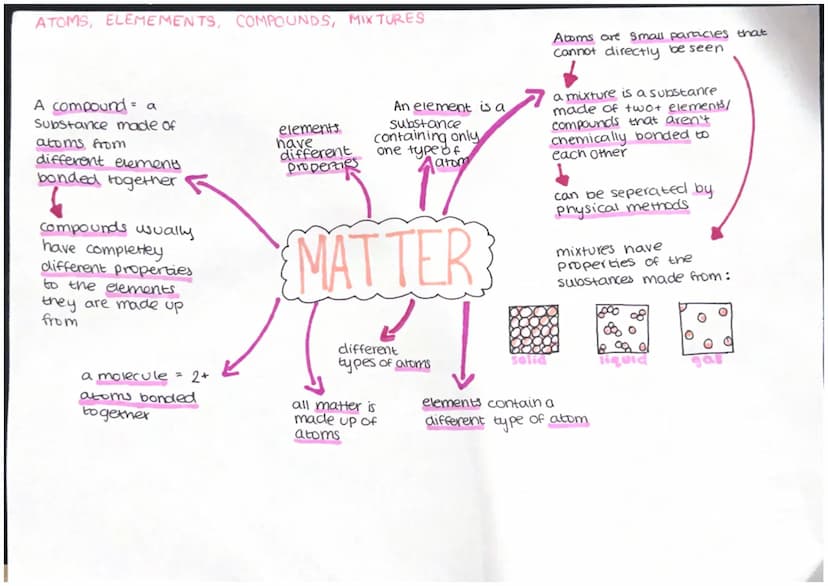 ATOMS, ELEMEMENTS, COMPOUNDS, MIXTURES
A compound = a
substance made of
atoms from
different elements
bonded together
compounds usually
have completley
different properties
to the elements
they are made up
from
elements
have
different
properties
An element is a
substance
containing only
one type of
atom
Atoms are small particles that
cannot directly be seen
a mixture is a substance
made of two+ elements/
compounds that aren't
chemically bonded to
each other
can be seperated by
physical methods
mixtures have
properties of the
substances made from:
solid
liquid
gas
MATTER
different
types of atoms
a molecule = 2+
atoms bonded
together
all matter is
made up of
atoms
elements contain a
different type of atom